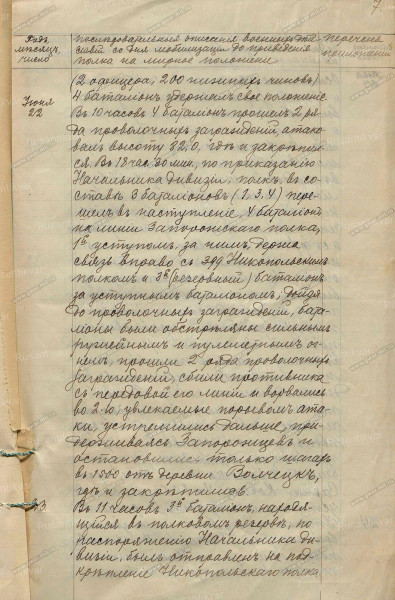 7
Годъ, мѣсяцъ, число
Послѣдовательныя описанія военныхъ дѣй
ствій со дня мобилизаціи до приведенія
полка на мирное положеніе
(2 офицера, 200 нижнихъ чиновъ)
4 баталіонъ удержалъ свое положеніе.
Июня
22
Въ 10 часовъ 4 баталіонъ прошелъ 2 ря
да проволочныхъ загражденій, атако
валъ высоту 82,0, гдѣ и закрѣпил
ся. Въ 18 час. 30 мин., по приказанію
Начальника дивизіи, полкъ въ со
ставѣ 3 баталіоновъ (1, 3, 4) пере
шелъ въ наступленіе, 4 баталіонъ
на линіи Запорожскаго полка,
1й уступомъ за нимъ, держа
связь вправо съ Никопольскимъ
полкомъ и 3й (резервный) баталіонъ
за уступнымъ баталіономъ; дойдя
до проволочныхъ загражденій, бата-
ліоны были обстрѣляны сильнымъ
ружейнымъ и пулеметнымъ ог-
немъ, прошли 2 ряда проволочныхъ
загражденій, сбили противника
съ передовой его линіи и ворвались
во 2-ю; увлекаемые порывомъ ата-
ки, устремились дальше, при-
держиваясь Запорожцевъ и
остановились только шагахъ
въ 1500 отъ деревни Волчецкъ,
гдѣ и закрѣпились.
23
Въ 11 часовъ 3й баталіонъ, находя-
щійся въ полковомъ резервѣ, по
распоряженію Начальника Ди-
визіи, былъ отправленъ на под-
крѣпленіе Никопольскаго полка